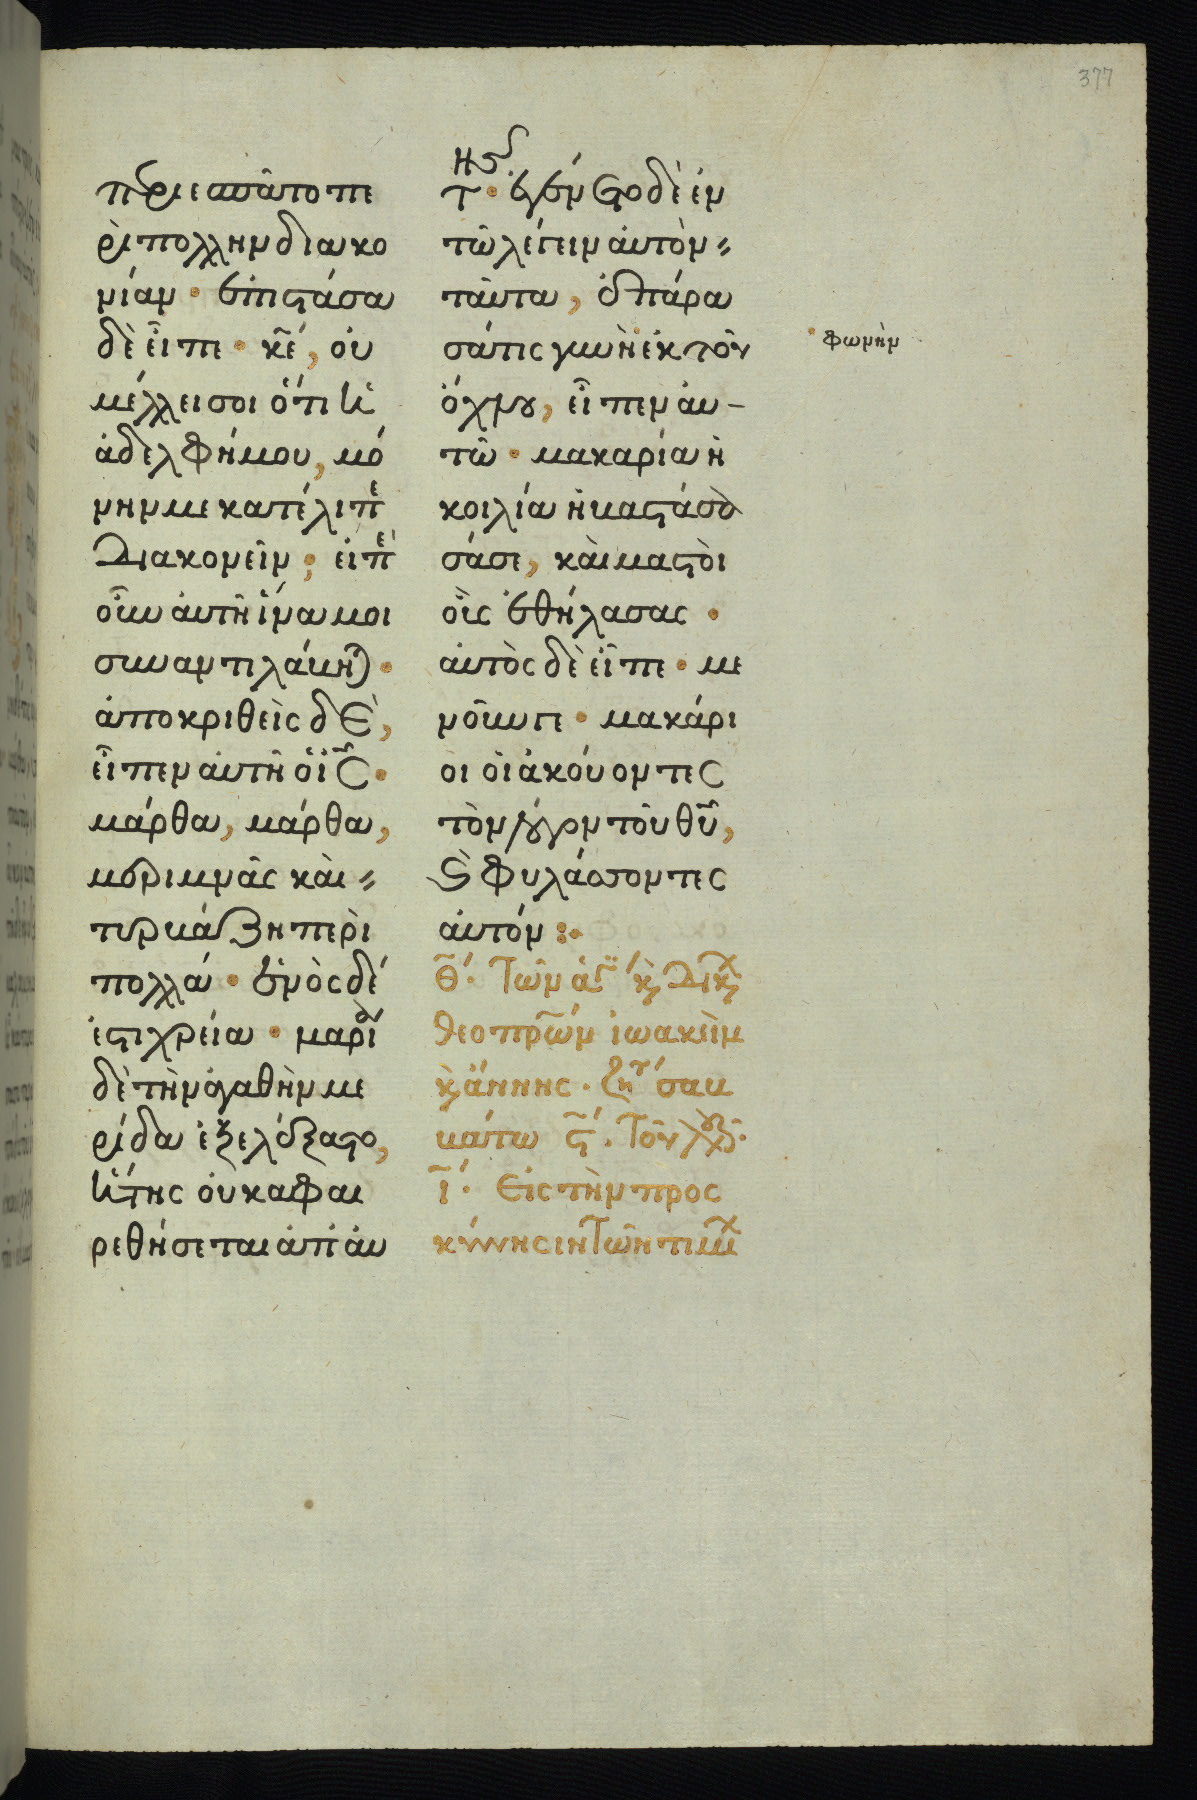 377
περιεσπᾶτο πε
ρὶ πολλὴν διακο
νίαν· ἐπιστάσα
δὲ εἶπε· κ̅ε̅, οὐ
μέλλει σοι ὅτι ἡ
ἀδελφή μου, μό
νην με κατέλιπε
διακονεῖν; εἰπὲ
οὖν αὐτῆ ἵνα μοι
συναντιλάβηται·
ἀποκριθεὶς δὲ,
εἶπεν αὐτῆ ὁ ι̅ς̅·
μάρθα, μάρθα,
μεριμνᾶς καὶ
τυρβάζη περὶ
πολλά· ἑνὸς δέ
ἐστι χρεία· μαρία
δὲ τὴν ἀγαθὴν με
ρίδα ἐξελέξατο,
ἥτις οὐκ ἀφαι
ρεθήσεται ἀπ' αὐ
της.
τ· ἐγένετο δὲ ἐν
τῶ λέγειν αὐτὸν
ταῦτα, ἐπάρα
σά τις γυνὴ ἐκ τοῦ
φωνὴν
ὄχλου, εἶπεν αὐ-
τῶ· μακαρία ἡ
κοιλία ἡ βαστάσα
σά σε, καὶ μαστοὶ
οἷς ἐθήλασας·
αὐτὸς δὲ εἶπε· με
νοῦνγε· μακάρι
οι οἱ ἀκούοντες
τὸν λόγον τοῦ θ̅υ̅,
καὶ φυλάσσοντες
αὐτόν:·
θ̅. Τῶν ἁγ κ̀ δικ
θεοπρων ἰωακεὶμ
κ̀ ἄννης. ζη σαβ
κάτω
ι̅. Εἰς τὴν προς
κύνησιν τῶν τιμ